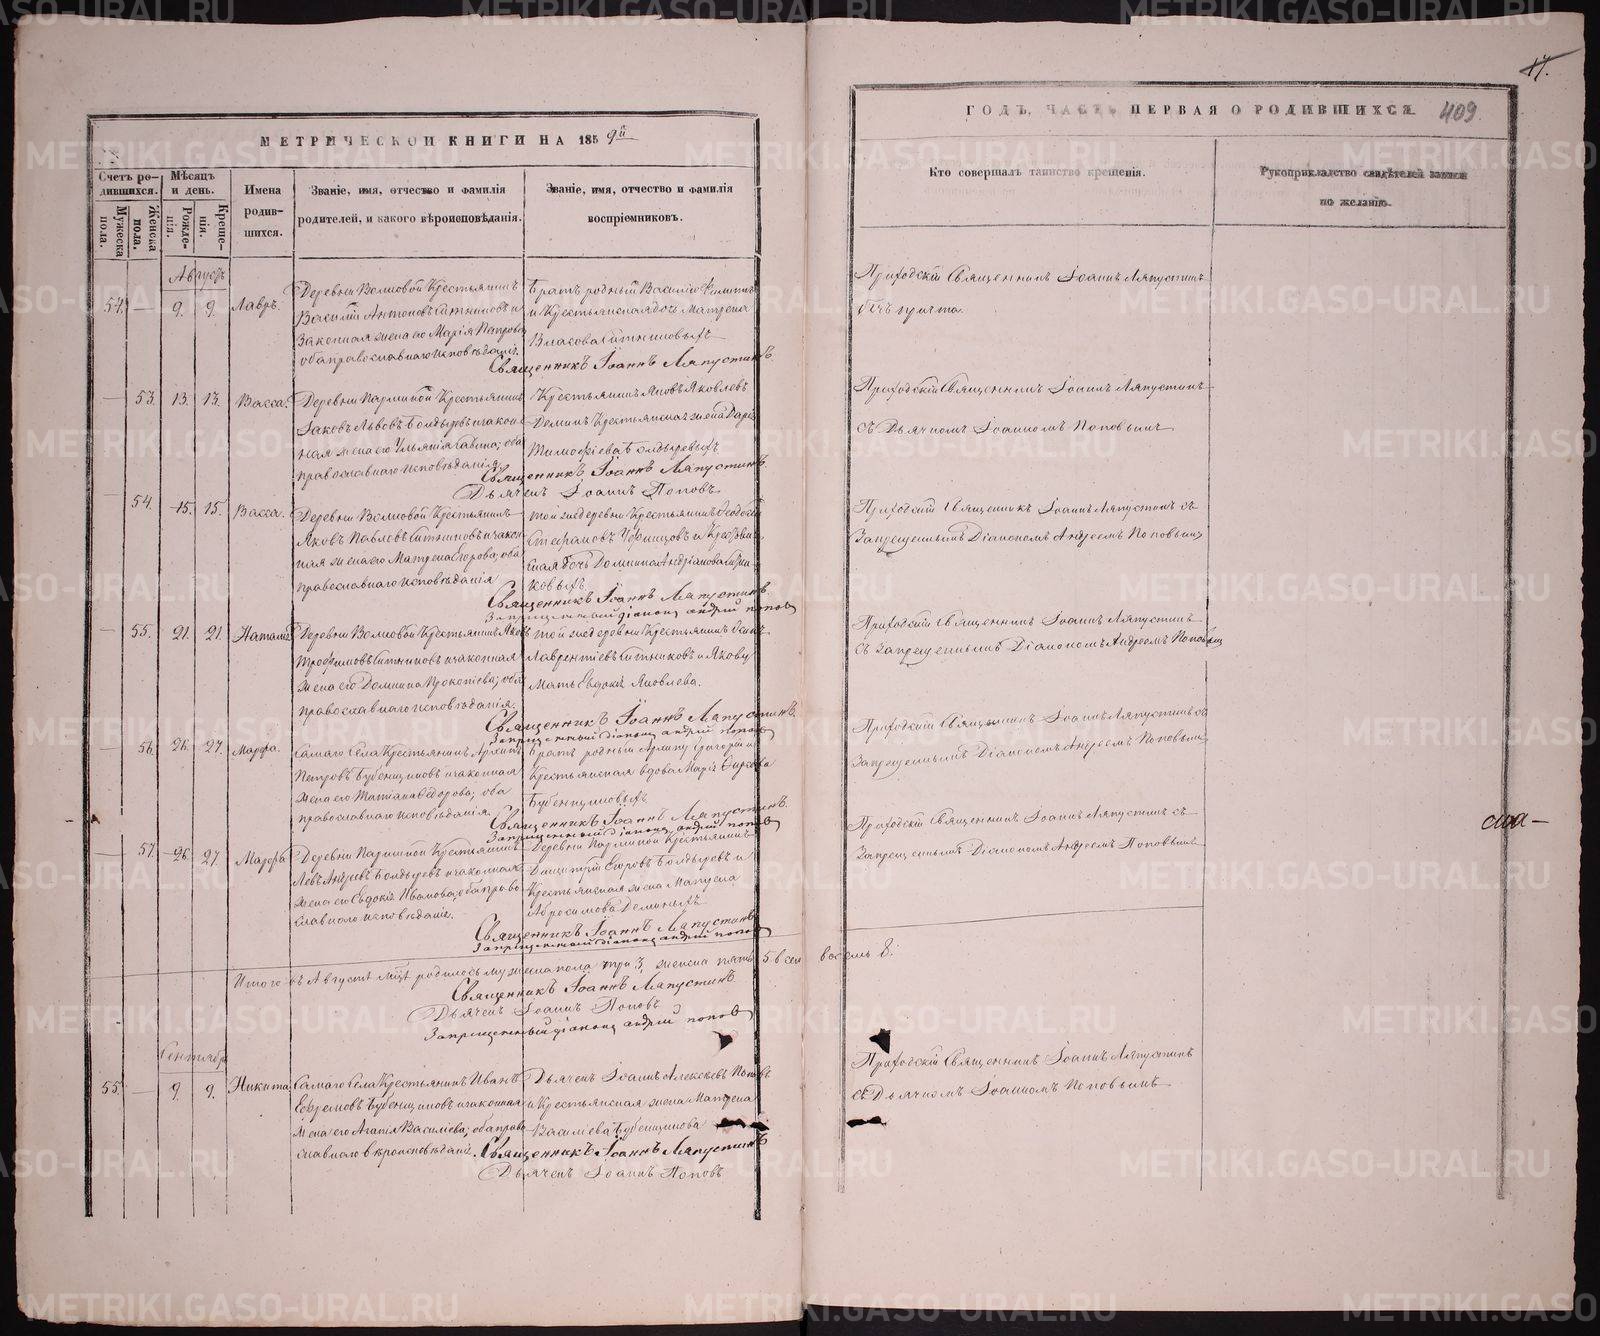 МЕТРИЧЕСКОЙ КНИГИ НА 1859й
Счетъ родившихся.
Мѣсяцъ и день.
Имена родившихся.
Званіе, имя, отчество и фамилія родителей, и какого вѣроисповѣданія.
Званіе, имя, отчество и фамилія воспріемниковъ.
Мужеска пола.
Женска пола.
Рожденія.
Крещенія.
Августъ
54. — 9. 9. Лавръ.
Деревни Волковой Крестьянинъ
Василій Антоновъ Ситниковъ и
Законная жена его Марія Петрова
оба православнаго исповѣданія.
Братъ родный Василію
и Крестьянская дочь Матрена
Власова Ситниковыхъ
Священникъ Іоаннъ Ляпустинъ
— 53. 13. 13. Васса.
Крестьянинъ
Яковъ Львовъ Болдыревъ и закон-
ная жена его Ульянія Савина; оба
православнаго исповѣданія
Крестьянинъ Яковъ Яковлевъ
Деминъ Крестьянская жена Дарія
Тимофіева Болдыревыхъ
Священникъ Іоаннъ Ляпустинъ
Дьячекъ Іоаннъ Поповъ
54. 15. 15. Васса.
Деревни Волковой Крестьянинъ
Яковъ Павловъ Ситниковъ и закон-
ная жена его Матрена Егорова; оба
православнаго исповѣданія
той же деревни Крестьянинъ
Стефановъ и Крестьян-
ская дочь Домника Андріанова Ситни-
ковыхъ
Священникъ Іоаннъ Ляпустинъ
Запрещенный діаконъ андрей попов
— 55. 21. 21. Наталія
Деревни Волковой Крестьянинъ Яковъ
Трофимовъ Ситниковъ и законная
жена его Домника Прокопіева; оба
православнаго исповѣданія.
той же деревни Крестьянинъ
Лаврентіевъ Ситниковъ и Якову
Мать Евдокія Яковлева.
Священникъ Іоаннъ Ляпустинъ.
Запрещенный діаконъ андрей попов
— 56. 26. 27. Марфа.
Самаго Села Крестьянинъ Архипъ
Петровъ Бубенщиковъ и законная
жена его Татіана Федорова; оба
православнаго исповѣданія.
Братъ родный Архипу Григорій и
Крестьянская вдова Марія
Бубенщиковыхъ
Священникъ Іоаннъ Ляпустинъ.
Запрещенный діаконъ андрей попов
— 57. 26. 27. Марфа
Крестьянинъ
Левъ Андреевъ Болдыревъ и законная
жена его Евдокія Иванова; оба право-
славнаго исповѣданія.
Крестьянинъ
Димитрій Егоровъ Болдыревъ и
Крестьянская жена Матрена
Абросимова Деминыхъ
Священникъ Іоаннъ Ляпустинъ
Запрещенный діаконъ андрей попов
Итого въ Августѣ мцѣ родилось мужеска пола три 3, женска пять 5 всѣхъ восемь 8.
Священникъ Іоаннъ Ляпустинъ
Дьячекъ Іоаннъ Поповъ
Запрещенный діаконъ андрей попов
Сентябрь
55. — 9. 9. Никита
Самаго Села Крестьянинъ Иванъ
Ефремовъ Бубенщиковъ и законная
жена его Агапія Василіева; оба право-
славнаго вѣроисповѣданія.
Дьячекъ Іоаннъ Алексѣевъ Поповъ
и Крестьянская жена Матрена
Василіева Бубенщикова
Священникъ Іоаннъ Ляпустинъ
Дьячекъ Іоаннъ Поповъ
17.
ГОДЪ, ЧАСТЬ ПЕРВАЯ О РОДИВШИХСЯ. 409
Кто совершалъ таинство крещенія.
Рукоприкладство свидѣтелей записи по желанію.
Приходскій Священникъ Іоаннъ Ляпустинъ
безъ причта.
Приходскій Священникъ Іоаннъ Ляпустинъ
съ Дьячкомъ Іоанномъ Поповымъ
Приходскій Священникъ Іоаннъ Ляпустинъ съ
Запрещеннымъ Діакономъ Андреемъ Поповымъ
Приходскій Священникъ Іоаннъ Ляпустинъ
съ запрещеннымъ Діакономъ Андреемъ Поповымъ
Приходскій Священникъ Іоаннъ Ляпустинъ съ
Запрещеннымъ Діакономъ Андреемъ Поповымъ
Приходскій Священникъ Іоаннъ Ляпустинъ съ
Запрещеннымъ Діакономъ Андреемъ Поповымъ
Приходскій Священникъ Іоаннъ Ляпустинъ
съ Дьячкомъ Іоанномъ Поповымъ
METRIKI.GASO-URAL.RU